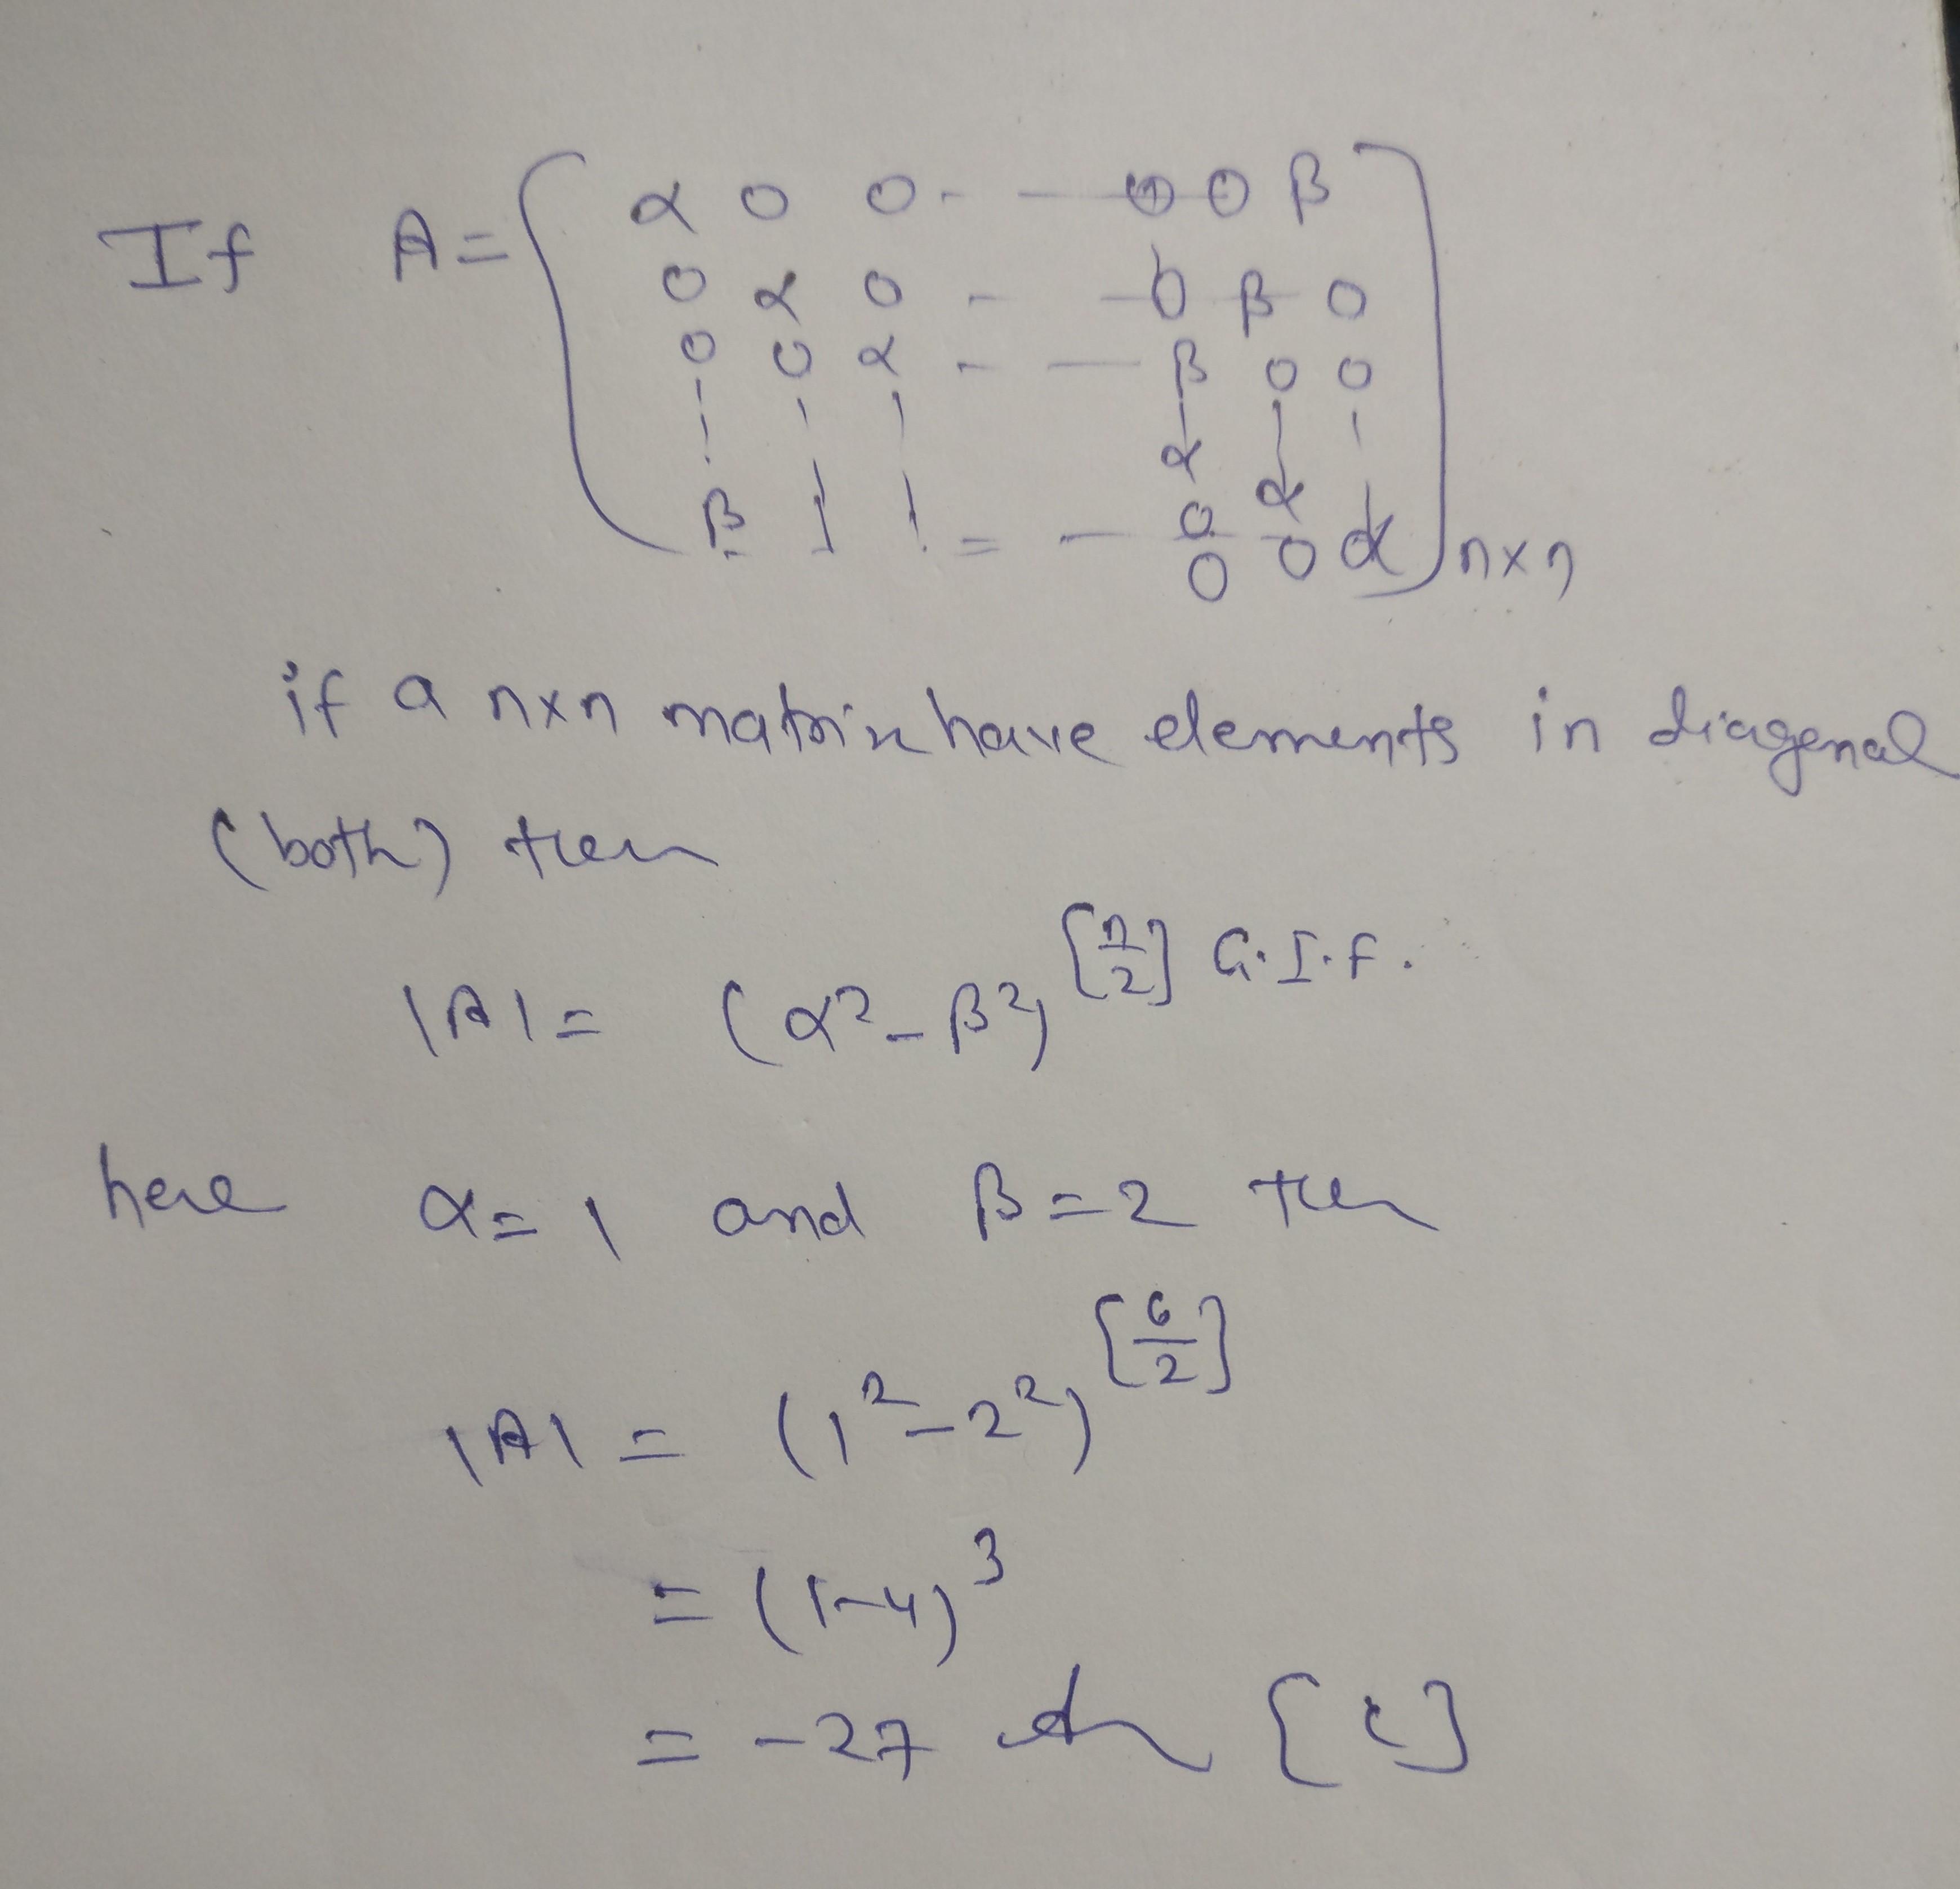 If A = [ α 0 0 - — 0 0 β
0 α 0 - — 0 β 0
0 0 α - — β 0 0
α
α
0
β = — 0 0 α ] n×n
if a n×n matrix have elements in diagonal
(both) then
|A| = (α² - β²)^[n/2] G.I.F.
here α = 1 and β = 2 then
|A| = (1² - 2²)^[6/2]
= (1-4)³
= -27